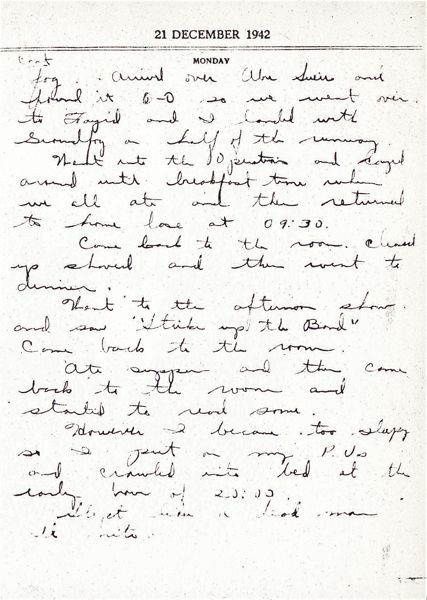 21 DECEMBER 1942
MONDAY
cont
fog. Arrived over Abu Sueir and
found it O-O so we went over
to Fayid and I landed with
groundfog on half of the runway.
Went into the Operations and stayed
around until breakfast time when
we all ate and then returned
to home base at 09:30.
Came back to the room. cleaned
up shaved and then went to
dinner.
Went to the afternoon show
and saw "Strike up the Band"
Came back to the room.
Ate supper and then came
back to the room and
started to read some.
However I became too sleepy
so I put on my P.Js
and crawled into bed at the
early hour of 20:00.
Slept like a dead man